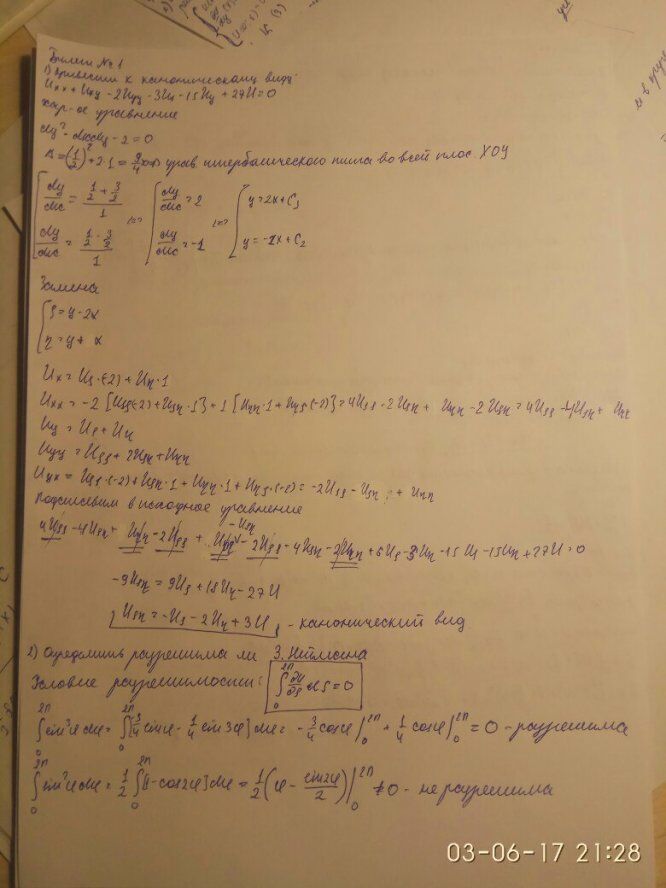 Билет № 1
1) Привести к каноническому виду:
Uxx + Uxy - 2Uyy - 3Ux - 15Uy + 27U = 0
хар-ое уравнение
dy² - dxdy - 2 = 0
Δ = (1/2)² + 2·1 = 9/4 >0 => урав. гиперболического типа во всей плос. XOY
{ dy/dx = (1/2 + 3/2)/1 <=> { dy/dx = 2 <=> { y = 2x + C1
dy/dx = (1/2 - 3/2)/1 dy/dx = -1 y = -1x + C2
Замена
{ ξ = y - 2x
η = y + x
Ux = Uξ·(-2) + Uη·1
Uxx = -2[Uξξ(-2) + Uξη·1] + 1[Uηη·1 + Uηξ(-2)] = 4Uξξ - 2Uξη + Uηη - 2Uξη = 4Uξξ - 4Uξη + Uηη
Uy = Uξ + Uη
Uyy = Uξξ + 2Uξη + Uηη
Uyx = Uξξ·(-2) + Uξη·1 + Uηη·1 + Uηξ·(-2) = -2Uξξ - Uξη + Uηη
Подставим в исходное уравнение
- Uξη
4Uξξ - 4Uξη + Uηη - 2Uξξ + Uηη - 2Uξξ - 4Uξη - 2Uηη + 6Uξ - 3Uη - 15Uξ - 15Uη + 27U = 0
-9Uξη = 9Uξ + 18Uη - 27U
Uξη = -Uξ - 2Uη + 3U - канонический вид
2) Определить разрешима ли З. Неймана
Условие разрешимости: ∫₀^2π ∂U/∂ρ dS = 0
∫₀^2π sin³φ dφ = ∫₀^2π [3/4 sinφ - 1/4 sin3φ] dφ = -3/4 cosφ |₀^2π + 1/4 cosφ |₀^2π = 0 - разрешима
∫₀^2π sin²φ dφ = 1/2 ∫₀^2π [1 - cos2φ] dφ = 1/2 (φ - sin2φ/2) |₀^2π ≠ 0 - не разрешима
03-06-17 21:28